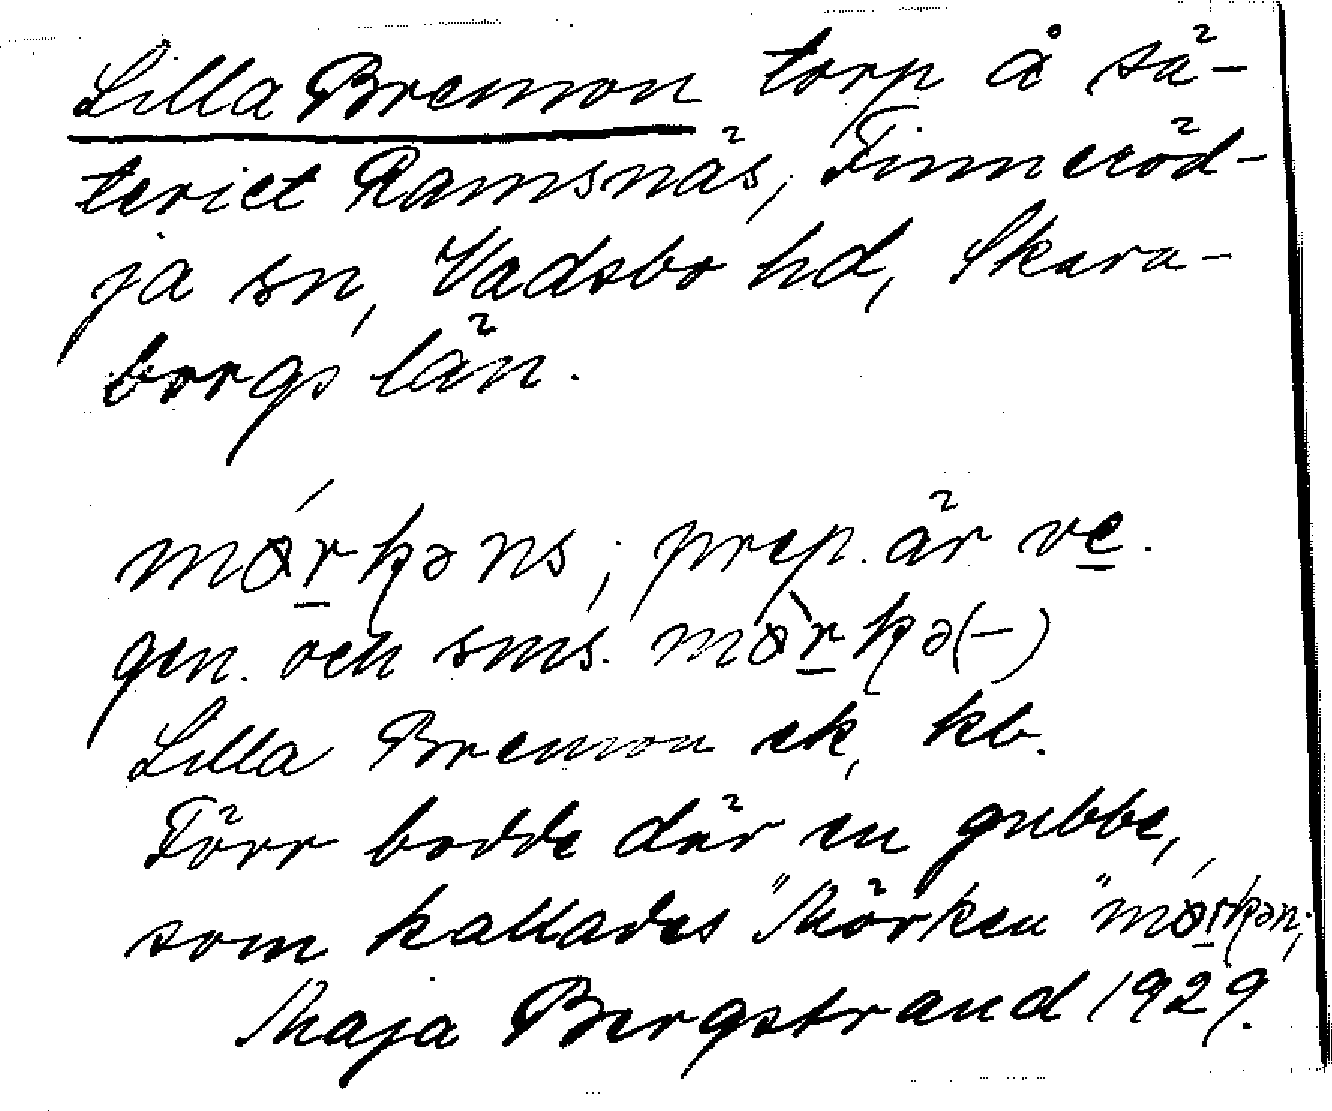 Lilla Bremon torp å sä-
teriet Ramsnäs, Finneröd-
ja sn, Vadsbo hd, Skara-
borgs län.
mǿrkəns; prep. är ve.
gen. och sms. mø̀rkə(-)
Lilla Bremon ek, kb.
Förr bodde där en gubbe,
som kallades "Mörken" mǿrkən;
Maja Bergstrand 1929.